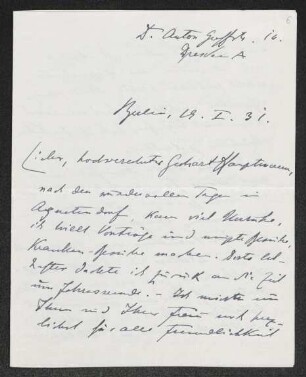 Dr. Anton
Dresden A
Berlin, 19. I. 31.
Lieber, hochverehrter Gerhart Hauptmann,
nach den wundervollen Tagen in
Agnetendorf, kam viel Unruhe,
ich hielt Vorträge und musste
Kranken machen. Desto leb-
hafter dachte ich zurück an die Zeit
um Jahresende. - Ich möchte nun
Ihnen und Ihrer Frau noch herz-
lichst für alle Freundlichkeit